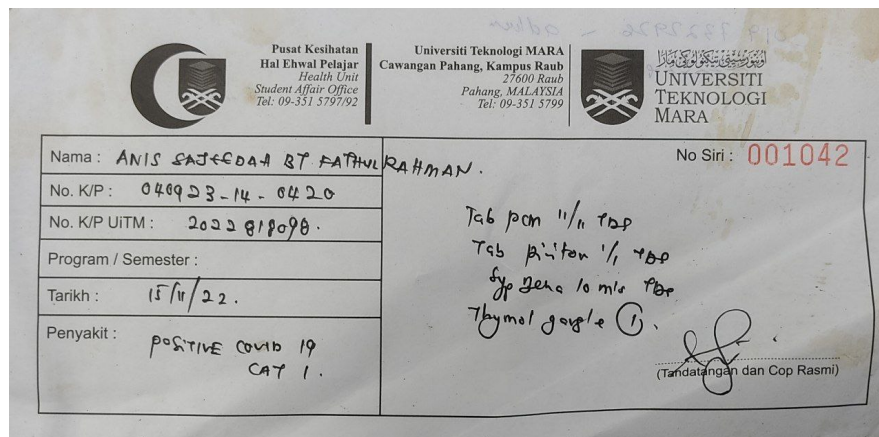 Pusat Kesihatan
Hal Ehwal Pelajar
Health Unit
Student Affair Office
Tel: 09-351 5797/92
Universiti Teknologi MARA
Cawangan Pahang, Kampus Raub
27600 Raub
Pahang, MALAYSIA
Tel: 09-351 5799
UNIVERSITI
TEKNOLOGI
MARA
No Siri : 001042
Nama : ANIS SAJEEDAH BT FATHUL RAHMAN.
No. K/P : 040923-14-0420
No. K/P UiTM : 2022818098.
Program / Semester :
Tarikh : 15/11/22.
Penyakit : POSITIVE COVID 19
CAT 1.
Tab pcm 11/11 TDS
Tab piriton 1/1 TDS
Syp 10 mls TDS
Thymol gargle 1.
(Tandatangan dan Cop Rasmi)